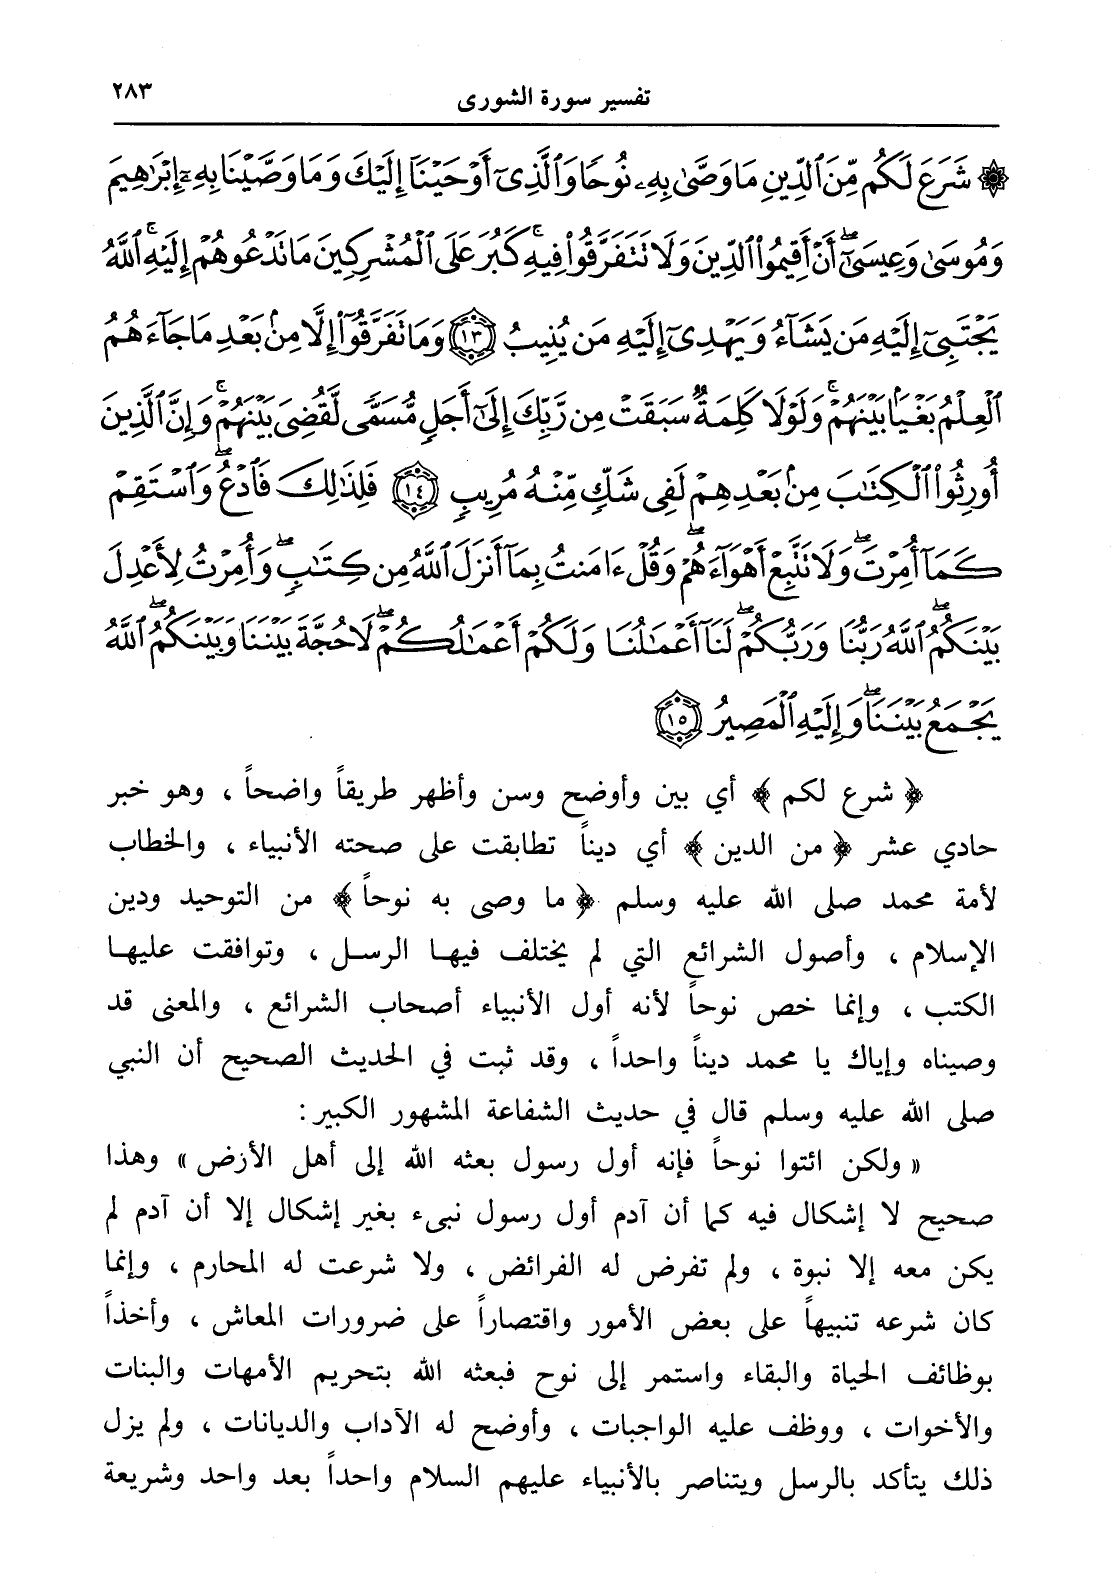 تفسير سورة الشورى ٢٨٣
۞ شَرَعَ لَكُم مِّنَ ٱلدِّينِ مَا وَصَّىٰ بِهِۦ نُوحًا وَٱلَّذِىٓ أَوْحَيْنَآ إِلَيْكَ وَمَا وَصَّيْنَا بِهِۦٓ إِبْرَٰهِيمَ
وَمُوسَىٰ وَعِيسَىٰٓ ۖ أَنْ أَقِيمُوا۟ ٱلدِّينَ وَلَا تَتَفَرَّقُوا۟ فِيهِ ۚ كَبُرَ عَلَى ٱلْمُشْرِكِينَ مَا تَدْعُوهُمْ إِلَيْهِ ۚ ٱللَّهُ
يَجْتَبِىٓ إِلَيْهِ مَن يَشَآءُ وَيَهْدِىٓ إِلَيْهِ مَن يُنِيبُ ١٣ وَمَا تَفَرَّقُوٓا۟ إِلَّا مِنۢ بَعْدِ مَا جَآءَهُمُ
ٱلْعِلْمُ بَغْيًۢا بَيْنَهُمْ ۚ وَلَوْلَا كَلِمَةٌ سَبَقَتْ مِن رَّبِّكَ إِلَىٰٓ أَجَلٍ مُّسَمًّى لَّقُضِىَ بَيْنَهُمْ ۚ وَإِنَّ ٱلَّذِينَ
أُورِثُوا۟ ٱلْكِتَٰبَ مِنۢ بَعْدِهِمْ لَفِى شَكٍّ مِّنْهُ مُرِيبٍ ١٤ فَلِذَٰلِكَ فَٱدْعُ ۖ وَٱسْتَقِمْ
كَمَآ أُمِرْتَ ۖ وَلَا تَتَّبِعْ أَهْوَآءَهُمْ ۖ وَقُلْ ءَامَنتُ بِمَآ أَنزَلَ ٱللَّهُ مِن كِتَٰبٍ ۖ وَأُمِرْتُ لِأَعْدِلَ
بَيْنَكُمُ ۖ ٱللَّهُ رَبُّنَا وَرَبُّكُمْ ۖ لَنَآ أَعْمَٰلُنَا وَلَكُمْ أَعْمَٰلُكُمْ ۖ لَا حُجَّةَ بَيْنَنَا وَبَيْنَكُمُ ۖ ٱللَّهُ
يَجْمَعُ بَيْنَنَا ۖ وَإِلَيْهِ ٱلْمَصِيرُ ١٥
﴿ شرع لكم ﴾ أي بين وأوضح وسن وأظهر طريقاً واضحاً ، وهو خبر
حادي عشر ﴿ من الدين ﴾ أي ديناً تطابقت على صحته الأنبياء ، والخطاب
لأمة محمد صلى الله عليه وسلم ﴿ ما وصى به نوحاً ﴾ من التوحيد ودين
الإسلام ، وأصول الشرائع التي لم يختلف فيها الرسل ، وتوافقت عليها
الكتب ، وإنما خص نوحاً لأنه أول الأنبياء أصحاب الشرائع ، والمعنى قد
وصيناه وإياك يا محمد ديناً واحداً ، وقد ثبت في الحديث الصحيح أن النبي
صلى الله عليه وسلم قال في حديث الشفاعة المشهور الكبير :
« ولكن ائتوا نوحاً فإنه أول رسول بعثه الله إلى أهل الأرض » وهذا
صحيح لا إشكال فيه كما أن آدم أول رسول نبىء بغير إشكال إلا أن آدم لم
يكن معه إلا نبوة ، ولم تفرض له الفرائض ، ولا شرعت له المحارم ، وإنما
كان شرعه تنبيهاً على بعض الأمور واقتصاراً على ضرورات المعاش ، وأخذاً
بوظائف الحياة والبقاء واستمر إلى نوح فبعثه الله بتحريم الأمهات والبنات
والأخوات ، ووظف عليه الواجبات ، وأوضح له الآداب والديانات ، ولم يزل
ذلك يتأكد بالرسل ويتناصر بالأنبياء عليهم السلام واحداً بعد واحد وشريعة